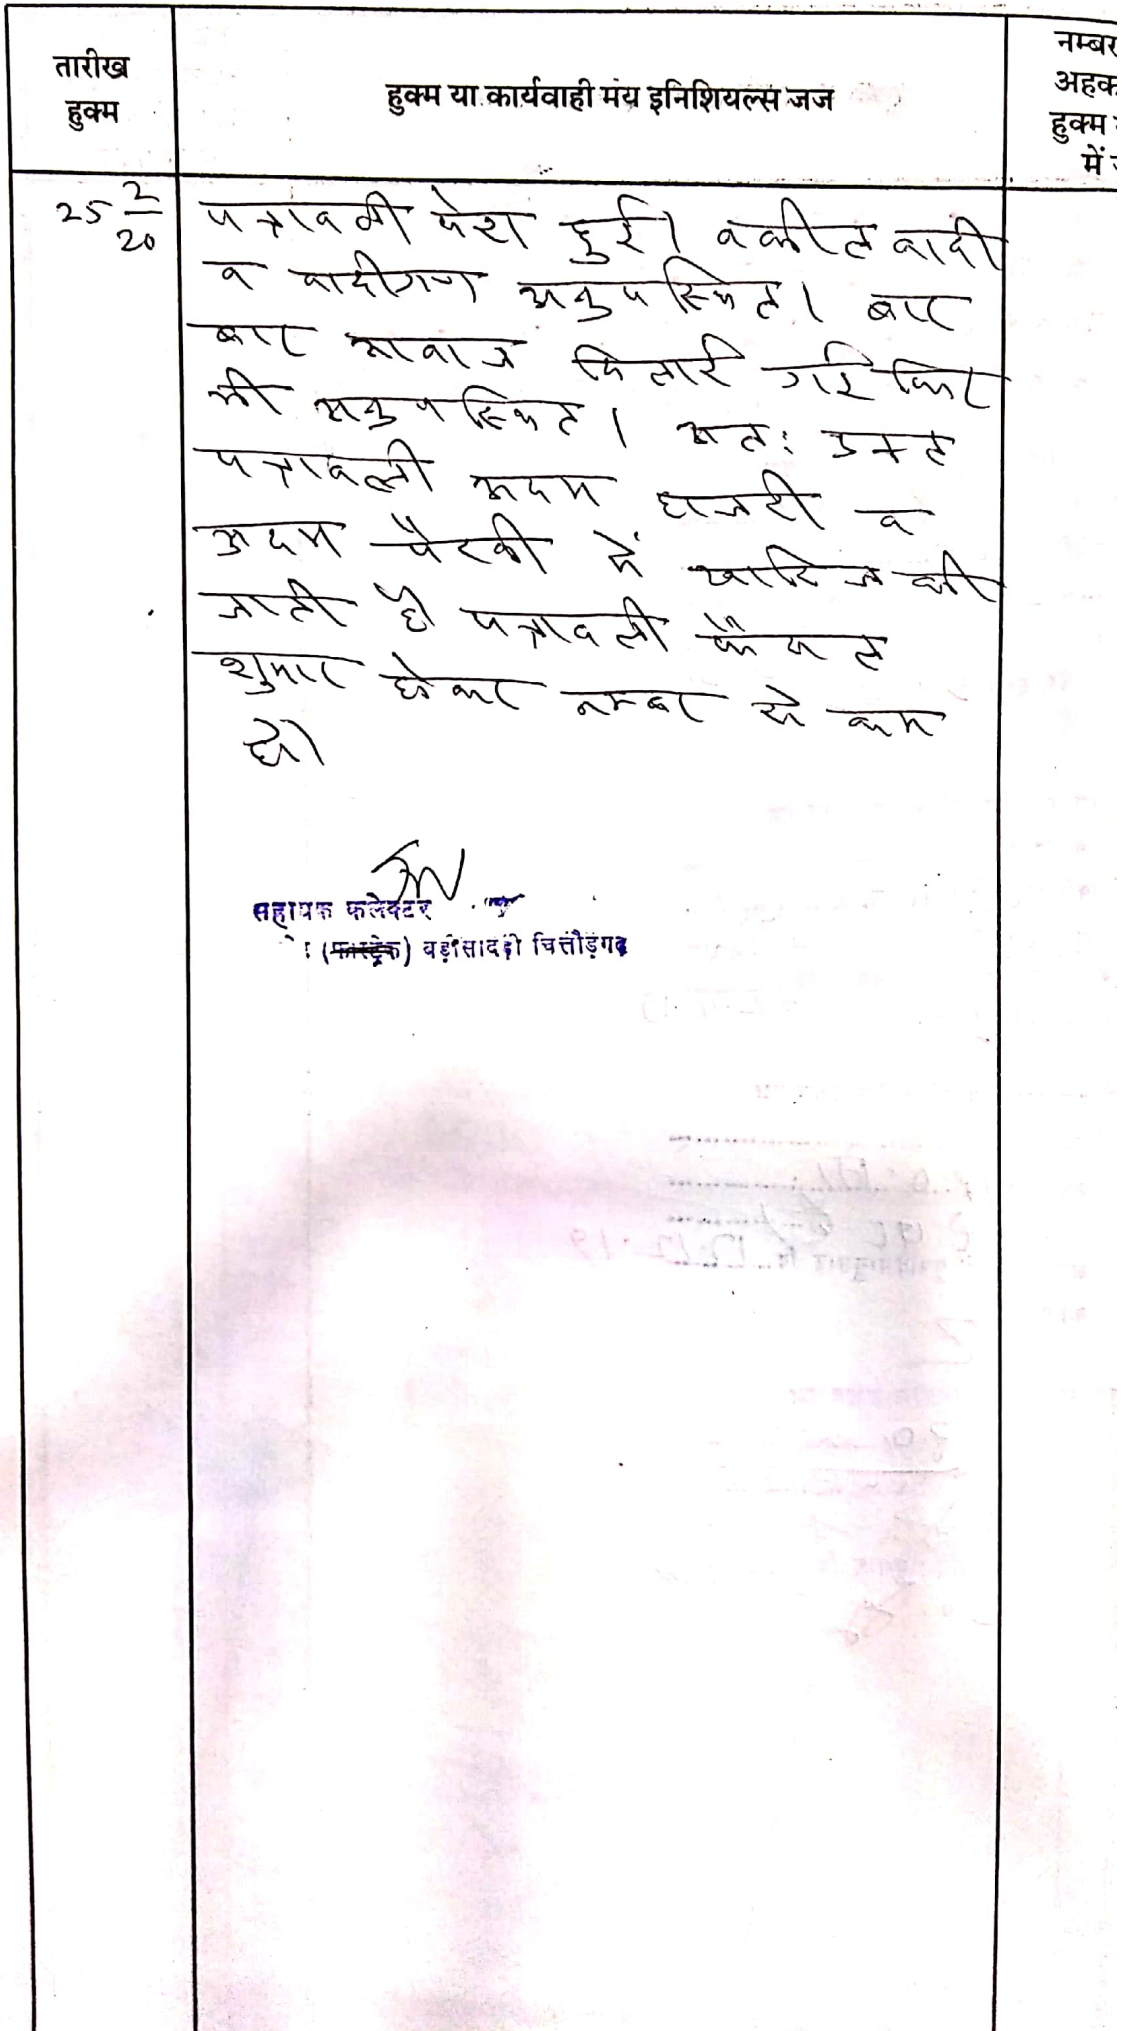 तारीख
हुक्म
हुक्म या कार्यवाही मय इनिशियल्स जज
नम्बर
अहक
हुक्म
में
25 2/20
पत्रावली पेश हुई। वकील वादी
व वादीगण अनुपस्थित। बार
बार आवाज दिलाई गई फिर
भी अनुपस्थित। अतः उक्त
पत्रावली अदम हाजरी व
अदम पैरवी में खारिज की
जाती है पत्रावली फैसल
शुमार होकर नम्बर से कम
हो।
सहायक कलेक्टर
(फास्ट्रेक) बड़ीसादड़ी चित्तौड़गढ़